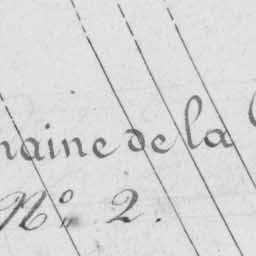 maine de la
Nº. 2.